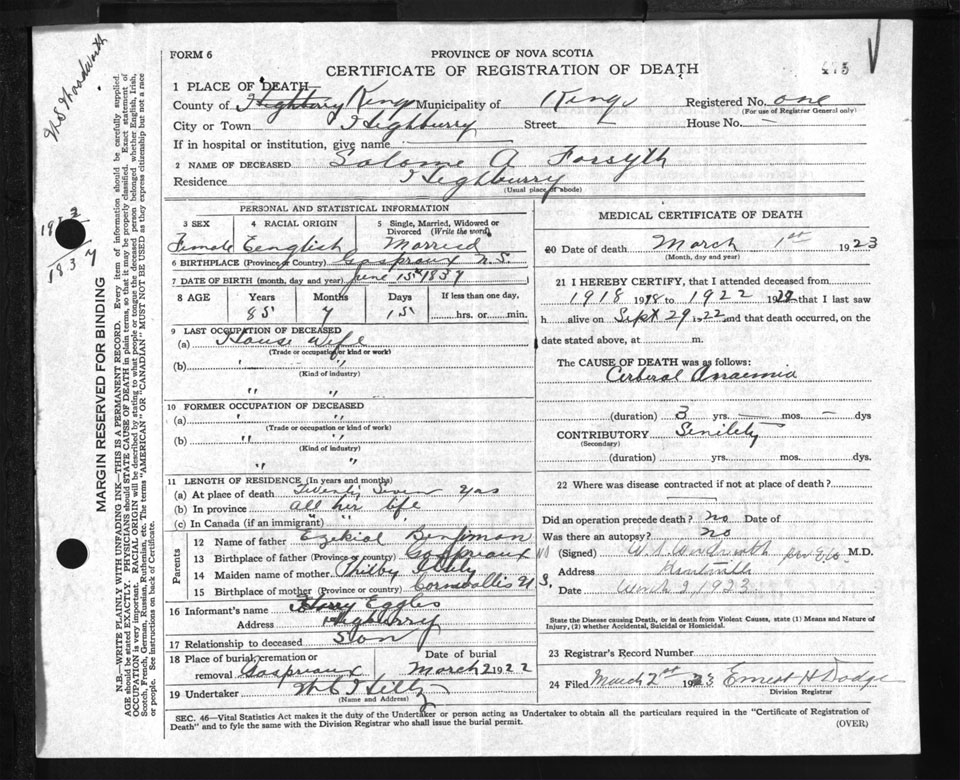 FORM 6
PROVINCE OF NOVA SCOTIA
CERTIFICATE OF REGISTRATION OF DEATH
1 PLACE OF DEATH—
County of Highburry Kings Municipality of Kings Registered No. one
(For use of Registrar General only)
City or Town Highburry Street House No. –
If in hospital or institution, give name
2 NAME OF DECEASED Salome A Forsyth
Residence Highburry
(Usual place of abode)
PERSONAL AND STATISTICAL INFORMATION
3 SEX 4 RACIAL ORIGIN 5 Single, Married, Widowed or Divorced (Write the word)
Female Eenglish Married
6 BIRTHPLACE (Province or Country) Gaspraux N.S.
7 DATE OF BIRTH (month, day and year) June 15th 1837
8 AGE Years Months Days If less than one day,
85 7 15 hrs. or min.
9 LAST OCCUPATION OF DECEASED
(a) House Wife
(Trade or occupation or kind or work)
(b) " "
(Kind of industry)
" "
10 FORMER OCCUPATION OF DECEASED
(a) " "
(Trade or occupation or kind of work)
(b) " "
(Kind of industry)
" "
11 LENGTH OF RESIDENCE (In years and months)
(a) At place of death Twenty Seven yas
(b) In province all her life
(c) In Canada (if an immigrant) " "
Parents
12 Name of father Ezekial Benjman
13 Birthplace of father (Province or country) Gaspreaux NS
14 Maiden name of mother Philby
15 Birthplace of mother (Province or country) Cornwallis N S,
16 Informant's name Harry Eagles
Address Highburry
17 Relationship to deceased Son
18 Place of burial, cremation or removal Gaspraux Date of burial March 2 1922
19 Undertaker
(Name and Address)
MEDICAL CERTIFICATE OF DEATH
20 Date of death March 1st 1923
(Month, day and year)
21 I HEREBY CERTIFY, that I attended deceased from
1918 1918 to 1922 1922 that I last saw
h alive on Sept 29 1922 and that death occurred, on the
date stated above, at m.
The CAUSE OF DEATH was as follows:
Cerberal Anaemia
(duration) 3 yrs. — mos. – dys
CONTRIBUTORY Senilety
(Secondary)
(duration) yrs. mos. dys.
22 Where was disease contracted if not at place of death?
Did an operation precede death? no Date of
Was there an autopsy? no
(Signed) W.S. Woodworth M.D.
Address Kentville
Date March 2, 1923
State the Disease causing Death, or in death from Violent Causes, state (1) Means and Nature of Injury, (2) whether Accidental, Suicidal or Homicidal.
23 Registrar's Record Number
24 Filed March 2nd 1923 Ernest H Dodge
Division Registrar
SEC. 46—Vital Statistics Act makes it the duty of the Undertaker or person acting as Undertaker to obtain all the particulars required in the "Certificate of Registration of
Death" and to fyle the same with the Division Registrar who shall issue the burial permit.
(OVER)
MARGIN RESERVED FOR BINDING
N.B.—WRITE PLAINLY WITH UNFADING INK—THIS IS A PERMANENT RECORD. Every item of information should be carefully supplied.
AGE should be stated EXACTLY. PHYSICIANS should STATE CAUSE OF DEATH in plain terms, so that it may be properly classified. Exact statement of
OCCUPATION is very important. RACIAL ORIGIN will be described by stating to what people or tongue the deceased person belonged, whether English, Irish,
Scotch, French, German, Russian, Ruthenian, etc. The terms "AMERICAN" OR "CANADIAN" MUST NOT BE USED as they express citizenship but not a race
or people. See instructions on back of Certificate.
W S Woodworth
1837